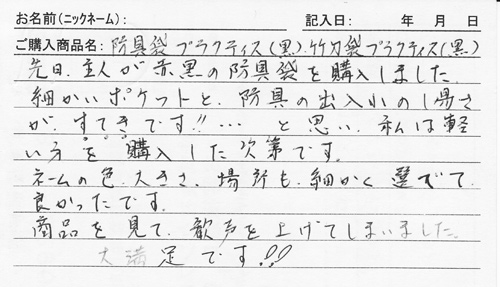 お名前(ニックネーム): 記入日: 年 月 日
ご購入商品名: 防具袋プラクティス(黒).竹刀袋プラクティス(黒)
先日.主人が赤黒の防具袋を購入しました.
細かいポケットと.防具の出入れのし易さ
が.すてきです!!… と思い.私は軽
い方を購入した次第です.
ネームの色.大きさ.場所も.細かく選べて.
良かったです.
商品を見て.歓声を上げてしまいました.
大満足です!!